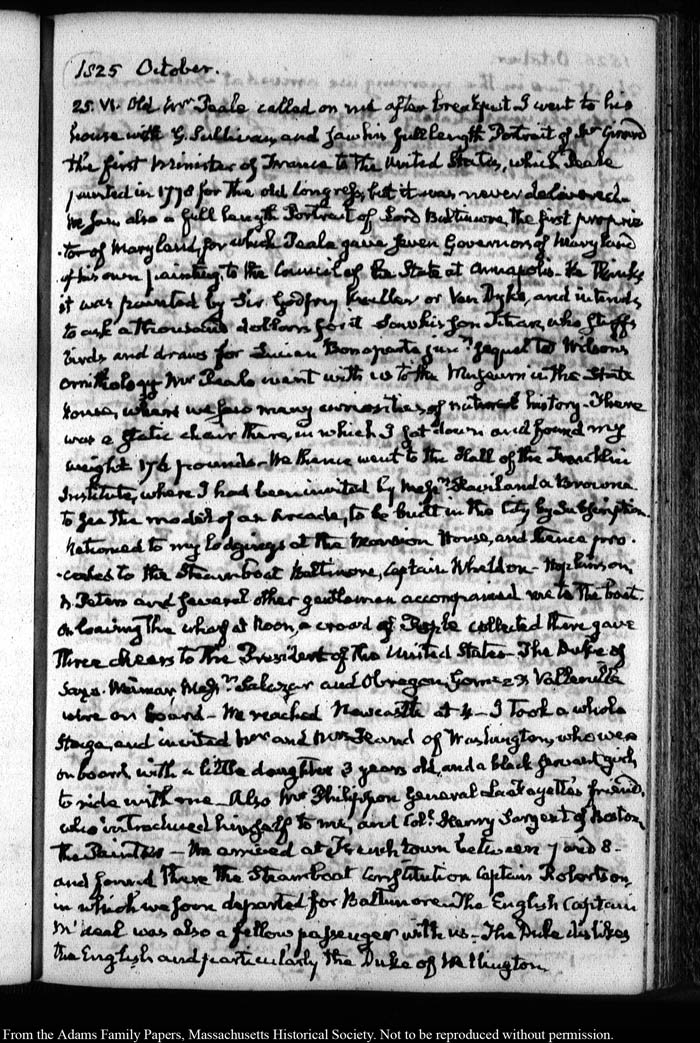 1825 October.
25. VI. Old Mr Peale called on me after breakfast I went to his
house with G. Sullivan, and saw his full length Portrait of Mr Gerard
the first Minister of France to the United States, which Peale
painted in 1778 for the old Congress, but it was never delivered.
We saw also a full length Portrait of Lord Baltimore, the first proprie
-tor of Maryland, for which Peale gave seven Governors of Maryland
of his own painting, to the Council of the State at Annapolis. He thinks
it was painted by Sir Godfrey Kneller or Van Dyke, and intends
to ask a thousand dollars for it Saw his son Titian, who stuffs
birds and draws for Lucian Bonaparte junr. sequel to Wilson's
ornithology. Mr Peale went with us to the Museum in the State
house, where we saw many curiosities of natural history. There
was a static chair there, in which I got down and found my
weight 176 pounds. We thence went to the Hall of the Franklin
Institute, where I had been invited by Messrs. Haviland & Browne
to see the model of an Arcade, to be built in the City by Subscription.
Returned to my lodgings at the Mansion House, and thence pro-
-ceeded to the Steamboat Baltimore, Captain Whelldon. Hopkinson,
R. Peters and several other gentlemen accompanied me to the boat.
On leaving the wharf at Noon, a crowd of People collected there gave
three cheers to the President of the United States. The Duke of
Saxe-Weimar, Messrs. Salazar and Obregon, Gomez & Valleville
were on board. We reached Newcastle at 4. I took a whole
Stage, and invited Mr and Mrs Peand of Washington, who were
on board, with a little daughter 3 years old, and a black servant girl,
to ride with me. Also Mr Philippon General La Fayette's friend,
who introduced himself to me, and Coll. Henry Sargent of Boston,
the Painter — We arrived at Frenchtown between 7 and 8.
and found there the Steamboat Constitution Captain Robertson,
in which we soon departed for Baltimore. The English Captain
M'deal was also a fellow passenger with us. The Duke dislikes
the English and particularly the Duke of Wellington
From the Adams Family Papers, Massachusetts Historical Society. Not to be reproduced without permission.